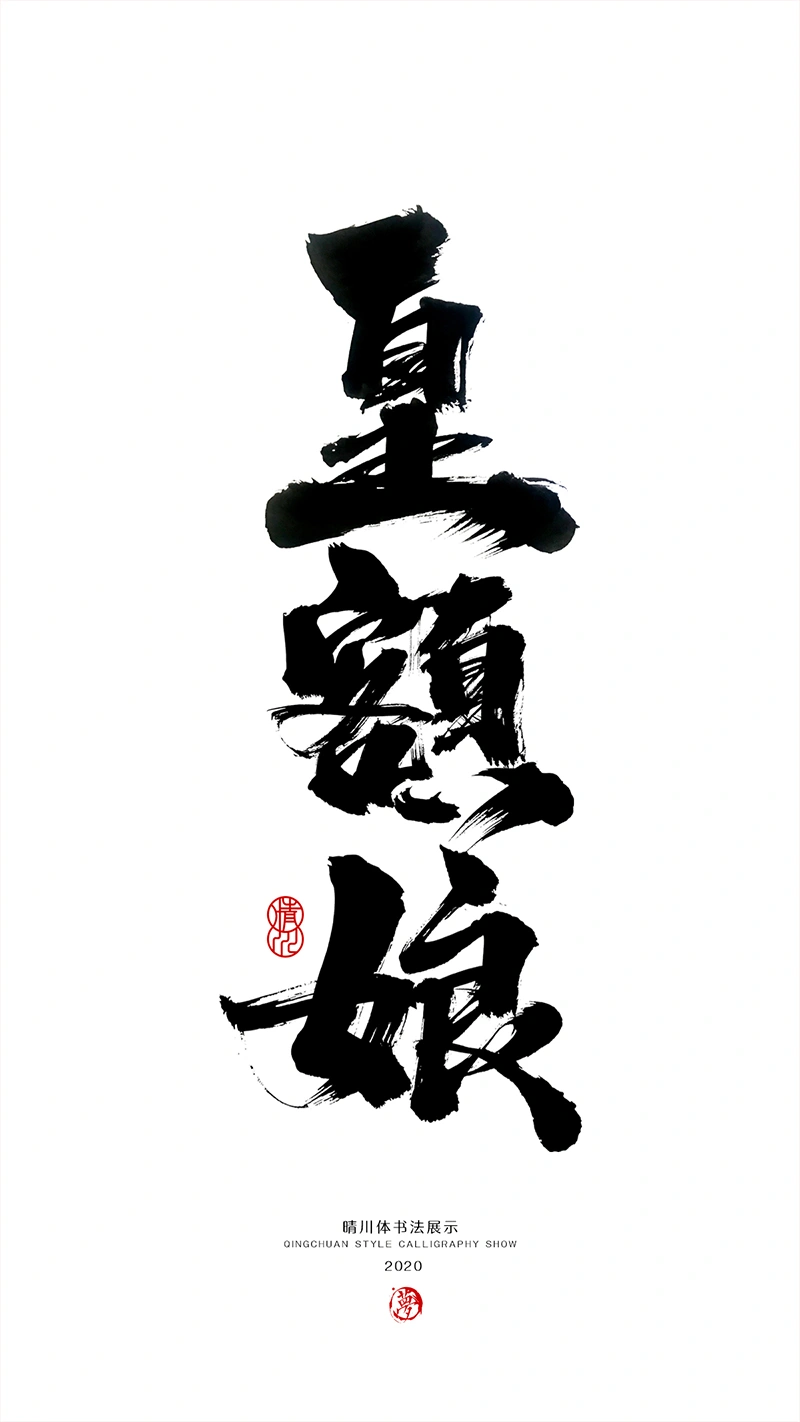 皇額娘
晴川
晴川体书法展示
QINGCHUAN STYLE CALLIGRAPHY SHOW
2020
夢